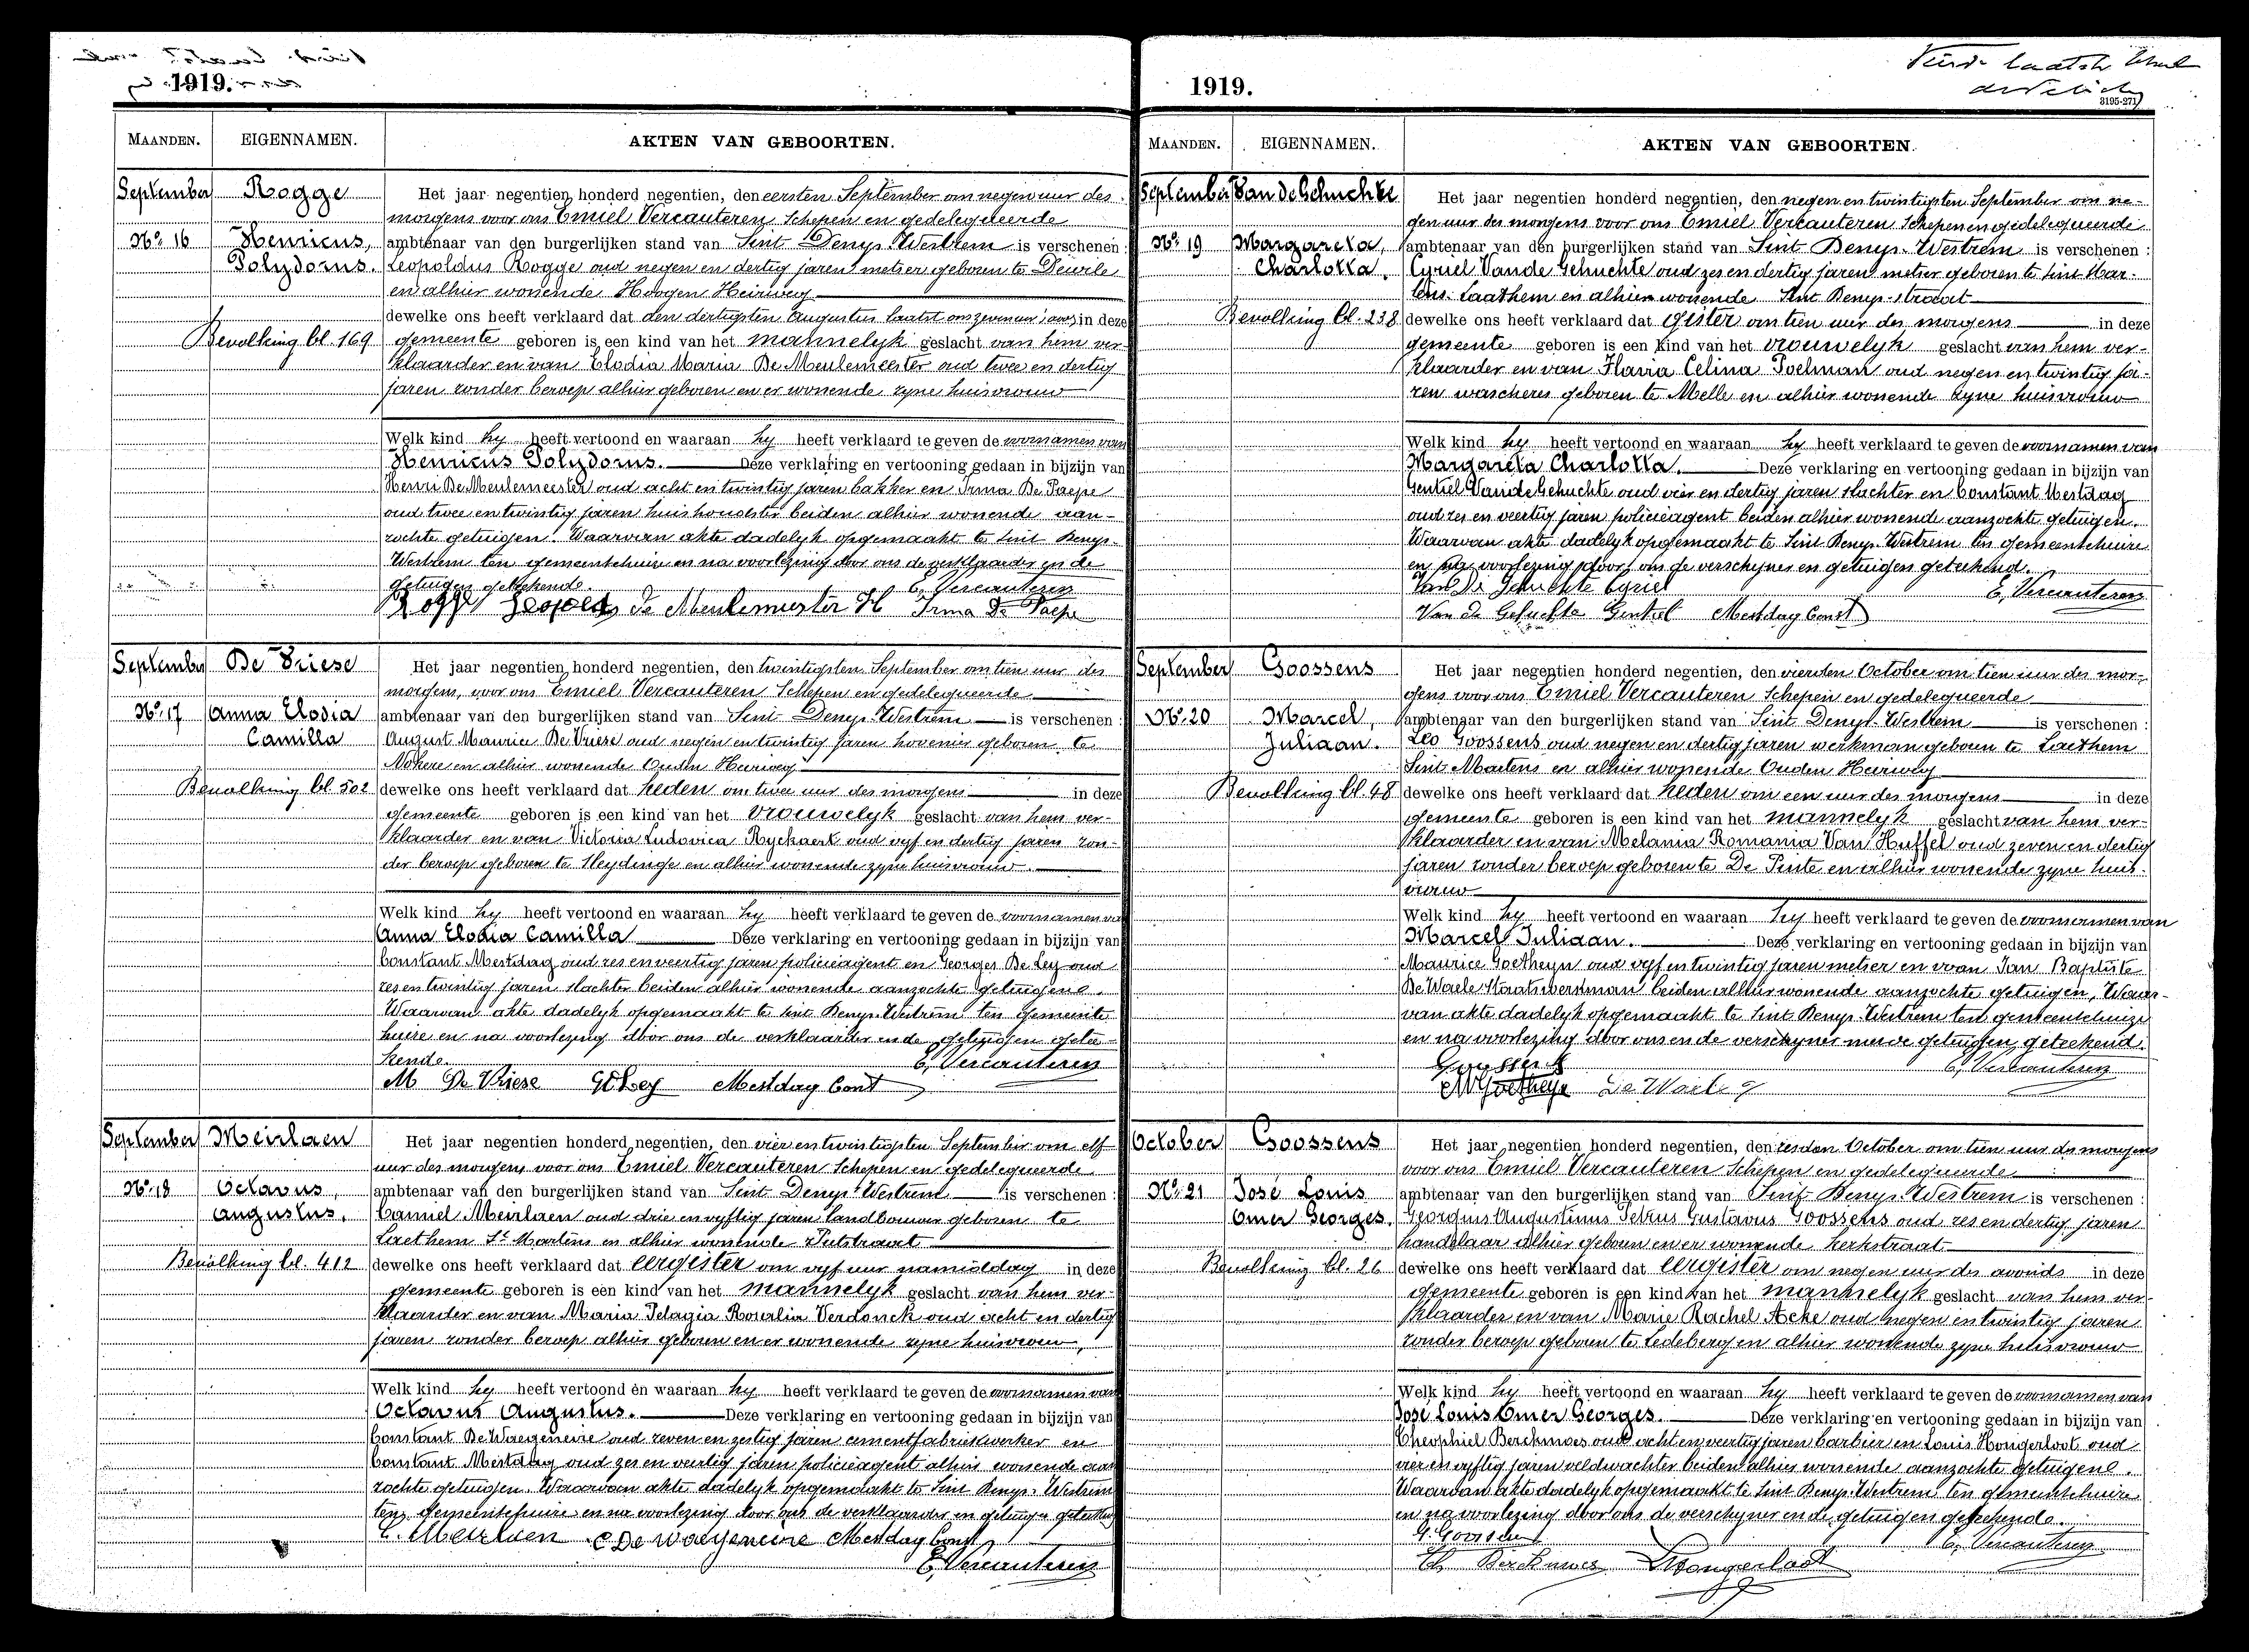 1919.
MAANDEN. EIGENNAMEN. AKTEN VAN GEBOORTEN.
September Rogge
No. 16 Henricus, Polydorus.
Bevolking bl. 169
Het jaar negentien honderd negentien, den eersten September om negen uur des
morgens voor ons Emiel Vercauteren Schepen en gedelegueerde
ambtenaar van den burgerlijken stand van Sint Denys Westrem is verschenen :
Leopoldus Rogge oud negen en dertig jaren metser geboren te Deurle
en alhier wonende Hoogen Heirweg
dewelke ons heeft verklaard dat den dertigsten Augustus laatst om zeven uur 's av. in deze
gemeente geboren is een kind van het mannelyk geslacht van hem ver-
klaarder en van Elodia Maria De Meulemeester oud twee en dertig
jaren zonder beroep alhier geboren en er wonende zyne huisvrouw
Welk kind hy heeft vertoond en waaraan hy heeft verklaard te geven de voornamen van
Henricus Polydorus. Deze verklaring en vertooning gedaan in bijzijn van
Henri De Meulemeester oud acht en twintig jaren bakker en Irma De Paepe
oud twee en twintig jaren huishoudster beiden alhier wonende aan-
zochte getuigen. Waarvan akte dadelyk opgemaakt te Sint Denys-
Westrem ten gemeentehuize en na voorlezing door ons de verklaarder en de
getuigen geteekende. E. Vercauteren
Rogge Leopold De Meulemeester H Irma De Paepe
September De Vriese
No. 17 Anna Elodia Camilla
Bevolking bl. 502
Het jaar negentien honderd negentien, den twintigsten September om tien uur des
morgens, voor ons Emiel Vercauteren Schepen en gedelegueerde
ambtenaar van den burgerlijken stand van Sint Denys Westrem is verschenen :
August Maurice De Vriese oud negen en twintig jaren hovenier geboren te
Nokere en alhier wonende Ouden Heirweg
dewelke ons heeft verklaard dat heden om twee uur des morgens in deze
gemeente geboren is een kind van het vrouwelyk geslacht van hem ver-
klaarder en van Victoria Ludovica Ryckaert oud vyf en dertig jaren zon-
der beroep geboren te Sleydinge en alhier wonende zyne huisvrouw.
Welk kind hy heeft vertoond en waaraan hy heeft verklaard te geven de voornamen van
Anna Elodia Camilla Deze verklaring en vertooning gedaan in bijzijn van
Constant Mestdag oud zes en veertig jaren policieagent en Georges De Ley oud
zes en twintig jaren slachter beiden alhier wonende aanzochte getuigen.
Waarvan akte dadelyk opgemaakt te Sint Denys-Westrem ten gemeente
huize en na voorlezing door ons de verklaarder en de getuigen getee-
kende. E. Vercauteren
M De Vriese G De Ley Mestdag Const
September Meirlaen
No. 18 Octavus, Augustus.
Bevolking bl. 412
Het jaar negentien honderd negentien, den vier en twintigsten September om elf
uur des morgens voor ons Emiel Vercauteren Schepen en gedelegueerde
ambtenaar van den burgerlijken stand van Sint Denys Westrem is verschenen :
Camiel Meirlaen oud drie en vyftig jaren landbouwer geboren te
Laethem St Martens en alhier wonende Putstraat
dewelke ons heeft verklaard dat eergister om vyf uur namiddag in deze
gemeente geboren is een kind van het mannelyk geslacht van hem ver-
klaarder en van Maria Pelagia Rosalia Verdonck oud acht en dertig
jaren zonder beroep alhier geboren en er wonende zyne huisvrouw,
Welk kind hy heeft vertoond en waaraan hy heeft verklaard te geven de voornamen van
Octavus Augustus. Deze verklaring en vertooning gedaan in bijzijn van
Constant De Waegeneire oud zeven en zestig jaren cementfabriekwerker en
Constant Mestdag oud zes en veertig jaren policieagent alhier wonende aan
zochte getuigen. Waarvan akte dadelyk opgemaakt te Sint Denys-Westrem
ten gemeentehuize en na voorlezing door ons de verklaarder en getuigen geteekend
C. Meirlaen C De Waegeneire Mestdag Const
E. Vercauteren
1919.
3195-271
MAANDEN. EIGENNAMEN. AKTEN VAN GEBOORTEN.
September Van de Gehuchte
No. 19 Margareta, Charlotta.
Bevolking bl. 238
Het jaar negentien honderd negentien, den negen en twintigsten September om ne-
gen uur des morgens voor ons Emiel Vercauteren Schepen en gedelegueerde
ambtenaar van den burgerlijken stand van Sint Denys-Westrem is verschenen :
Cyriel Van de Gehuchte oud zes en dertig jaren metser geboren te Sint Mar-
tens Laathem en alhier wonende Sint Denys-straat
dewelke ons heeft verklaard dat gister om tien uur des morgens in deze
gemeente geboren is een kind van het vrouwelyk geslacht van hem ver-
klaarder en van Flavia Celina Poelman oud negen en twintig ja-
ren wascheres geboren te Melle en alhier wonende zyne huisvrouw
Welk kind hy heeft vertoond en waaraan hy heeft verklaard te geven de voornamen van
Margareta Charlotta. Deze verklaring en vertooning gedaan in bijzijn van
Gentiel Van de Gehuchte oud vier en dertig jaren slachter en Constant Mestdag
oud zes en veertig jaren policieagent beiden alhier wonende aanzochte getuigen.
Waarvan akte dadelyk opgemaakt te Sint Denys-Westrem ten gemeentehuize
en na voorlezing door ons de verschyner en getuigen geteekend.
Van De Gehuchte Cyriel E. Vercauteren
Van de Gehuchte Gentiel Mestdag Const
September Goossens
No. 20 Marcel, Juliaan.
Bevolking bl. 48
Het jaar negentien honderd negentien, den vierden October om tien uur des mor-
gens voor ons Emiel Vercauteren Schepen en gedelegueerde
ambtenaar van den burgerlijken stand van Sint Denys-Westrem is verschenen :
Leo Goossens oud negen en dertig jaren werkman geboren te Laethem
Sint Martens en alhier wonende Ouden Heirweg
dewelke ons heeft verklaard dat heden om een uur des morgens in deze
gemeente geboren is een kind van het mannelyk geslacht van hem ver-
klaarder en van Melania Romania Van Huffel oud zeven en dertig
jaren zonder beroep geboren te De Pinte en alhier wonende zyne huis-
vrouw
Welk kind hy heeft vertoond en waaraan hy heeft verklaard te geven de voornamen van
Marcel Juliaan. Deze verklaring en vertooning gedaan in bijzijn van
Maurice Goetheyn oud vyf en twintig jaren metser en van Jan Baptiste
De Waele Staatswerkman beiden alhier wonende aanzochte getuigen, Waar-
van akte dadelyk opgemaakt te Sint Denys-Westrem ten gemeentehuize
en na voorlezing door ons en de verschyner getuigen geteekend.
Goossens E. Vercauteren
M Goetheyn De Waele
October Goossens
No. 21 José Louis Omer Georges.
Bevolking bl. 26
Het jaar negentien honderd negentien, den zesden October om tien uur des morgens
voor ons Emiel Vercauteren Schepen en gedelegueerde
ambtenaar van den burgerlijken stand van Sint Denys-Westrem is verschenen :
Georgius Augustinus Petrus Gustavus Goossens oud zes en dertig jaren
handelaar alhier geboren en er wonende Kerkstraat
dewelke ons heeft verklaard dat eergister om negen uur des avonds in deze
gemeente geboren is een kind van het mannelyk geslacht van hem ver-
klaarder en van Marie Rachel Acke oud negen en twintig jaren
zonder beroep geboren te Ledeberg en alhier wonende zyne huisvrouw
Welk kind hy heeft vertoond en waaraan hy heeft verklaard te geven de voornamen van
José Louis Omer Georges. Deze verklaring en vertooning gedaan in bijzijn van
Theophiel Berckmoes oud acht en veertig jaren barbier en Louis Hongerloot oud
vier en vyftig jaren veldwachter beiden alhier wonende aanzochte getuigen.
Waarvan akte dadelyk opgemaakt te Sint Denys-Westrem ten gemeentehuize
en na voorlezing door ons de verschyner en de getuigen geteekende.
G. Goossens E. Vercauteren
Th Berckmoes L Hongerloot